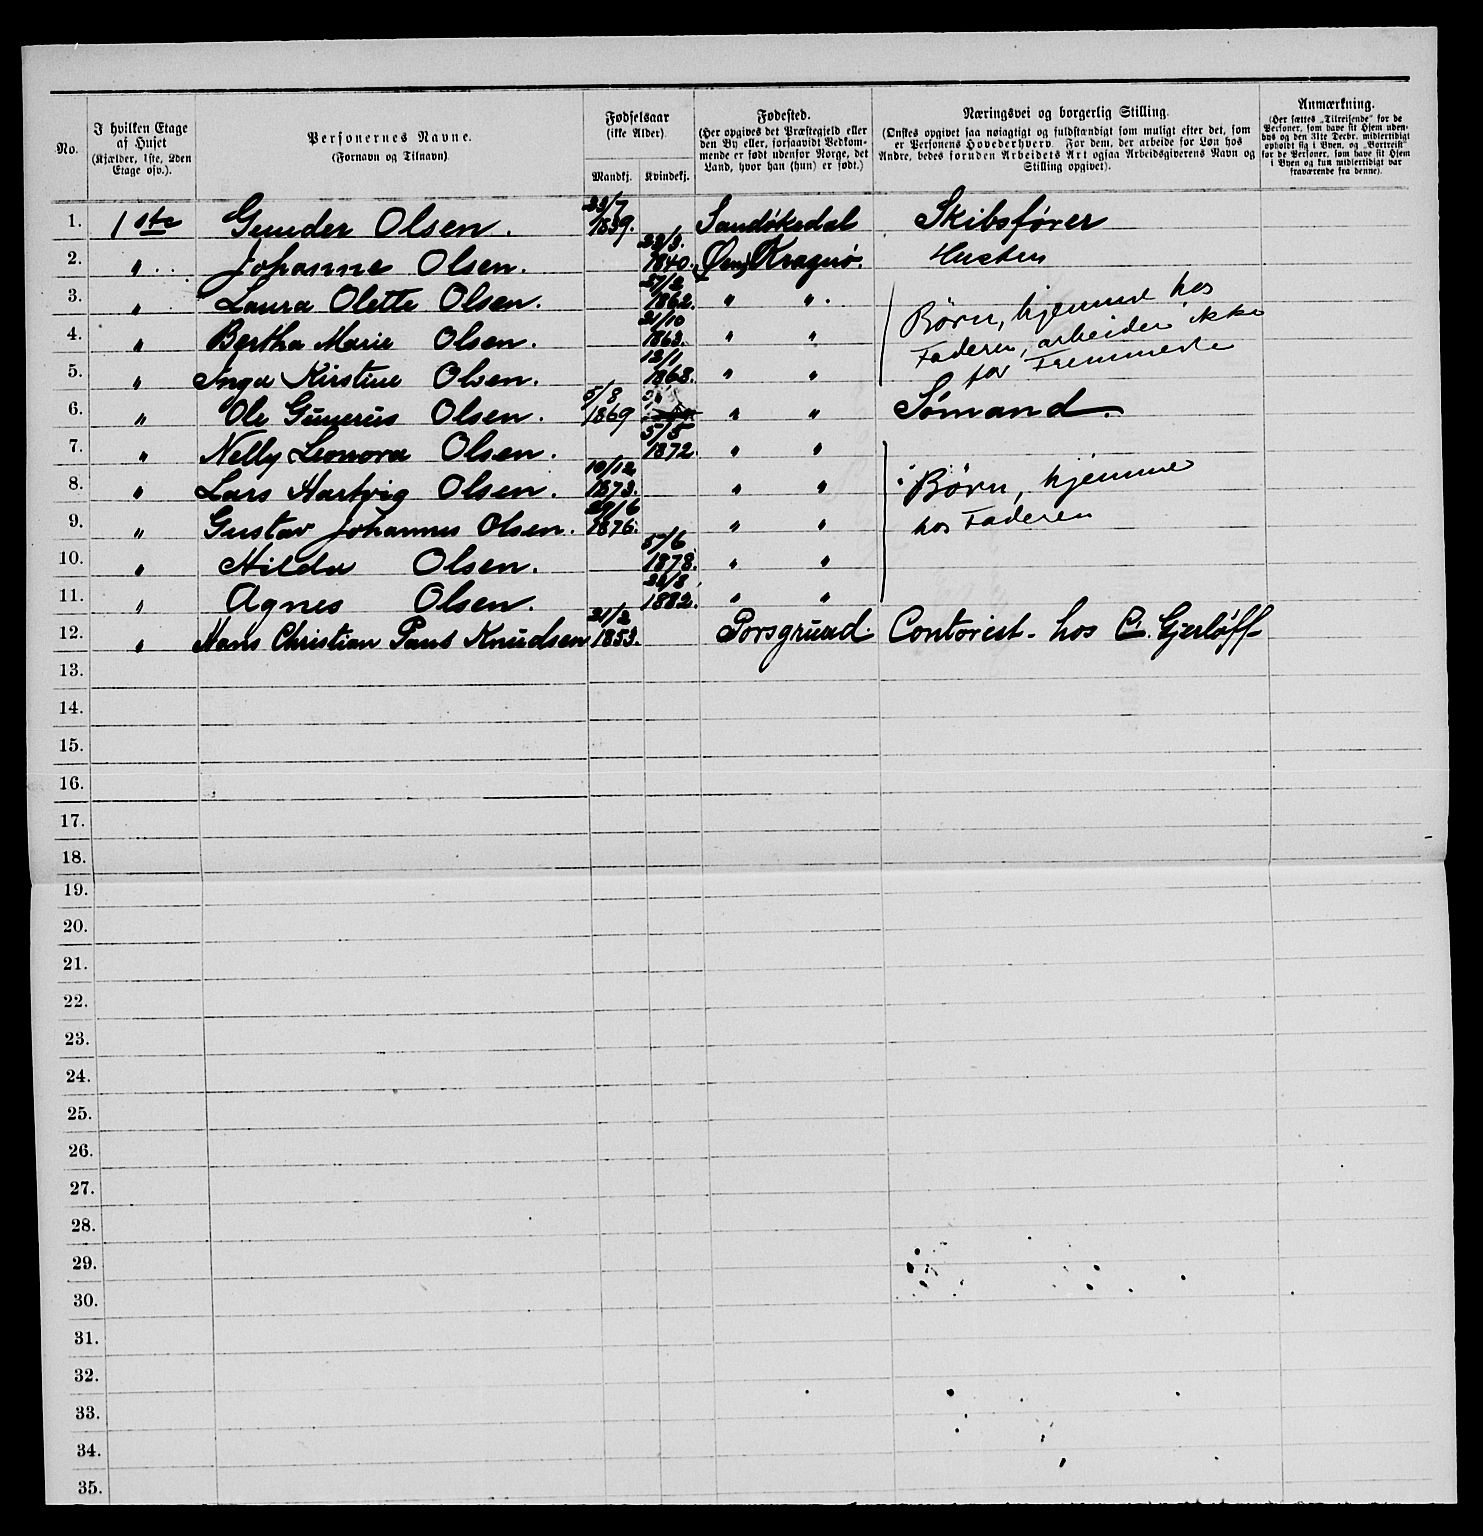 No.
I hvilken Etage af Huset (Kjælder, 1ste, 2den Etage osv.).
Personernes Navne. (Fornavn og Tilnavn)
Fødselsaar (ikke Alder). Mandkj. Kvindekj.
Fødested. (Her opgives det Præstegjeld eller den By eller, forsaavidt Vedkommende er født udenfor Norge, det Land, hvor han (hun) er født.)
Næringsvei og borgerlig Stilling. (Ønskes opgivet saa nøiagtigt og fuldstændigt som muligt efter det, som er Personens Hovederhverv. For dem, der arbeide for Løn hos Andre, bedes foruden Arbeidets Art ogsaa Arbeidsgiverens Navn og Stilling opgivet).
Anmærkning. (Her sættes „Tilreisende“ for de Personer, som have sit Hjem udenbys og den 31te Decbr. midlertidigt opholdt sig i Byen, og „Bortreist“ for de Personer, som have sit Hjem i Byen og kun midlertidigt var fraværende fra denne).
1. 1ste Gunder Olsen. 23/7 1839. Sandøkedal Skibsfører
2. " Johanne Olsen. 23/3. 1840. Kragerø. Husten
3. " Laura Olette Olsen. 27/2 1862. " " Børn, hjemme hos
4. " Bertha Marie Olsen. 21/10 1863. " " Faderen, arbeider ikke
5. " Inga Kirstine Olsen. 12/1 1868. " " for Fremmede
6. " Ole Gunerius Olsen. 5/8 1869 " " Sømand.
7. " Nelly Leonora Olsen. 5/5 1872 " "
8. " Lars Hartvig Olsen. 10/12 1873. " " Børn, hjemme
9. " Gustav Johannes Olsen. 29/6 1876. " " hos Faderen
10. " Hilda Olsen. 5/6 1878. " "
11. " Agnes Olsen. 23/8 1882. " "
12. " Hans Christian Paus Knudsen 21/2 1853. Porsgrund. Contorist. hos C. Gjerløff
13.
14.
15.
16.
17.
18.
19.
20.
21.
22.
23.
24.
25.
26.
27.
28.
29.
30.
31.
32.
33.
34.
35.